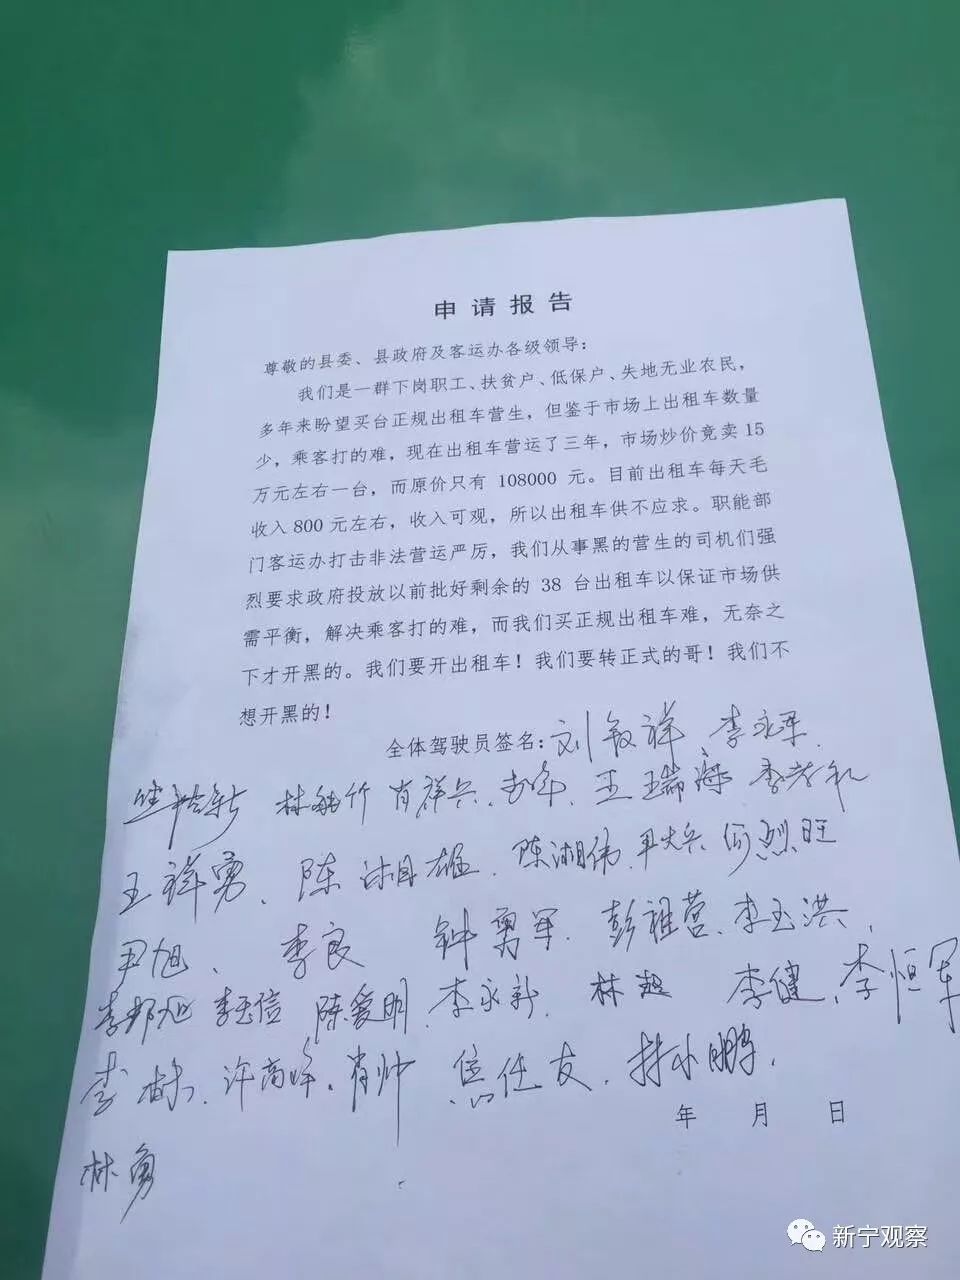 申请报告
尊敬的县委、县政府及客运办各级领导：
我们是一群下岗职工、扶贫户、低保户、失地无业农民，
多年来盼望买台正规出租车营生，但鉴于市场上出租车数量
少，乘客打的难，现在出租车营运了三年，市场炒价竟卖 15
万元左右一台，而原价只有 108000 元。目前出租车每天毛
收入 800 元左右，收入可观，所以出租车供不应求。职能部
门客运办打击非法营运严厉，我们从事黑的营生的司机们强
烈要求政府投放以前批好剩余的 38 台出租车以保证市场供
需平衡，解决乘客打的难，而我们买正规出租车难，无奈之
下才开黑的。我们要开出租车！我们要转正式的哥！我们不
想开黑的！
全体驾驶员签名：刘敏祥、李永军
林毓竹 肖群兵、王瑞海 李孝礼
王祥勇、陈湘雄、陈湘伟、尹大兵 何烈旺
尹旭、李良 钟勇军、彭祖营、李玉洪、
李邦旭 李玉信 陈爱明、李永新、林超 李健、李恒军
李栋、许高峰、肖帅 焦任友、林小鹏、
年 月 日
林勇
新宁观察